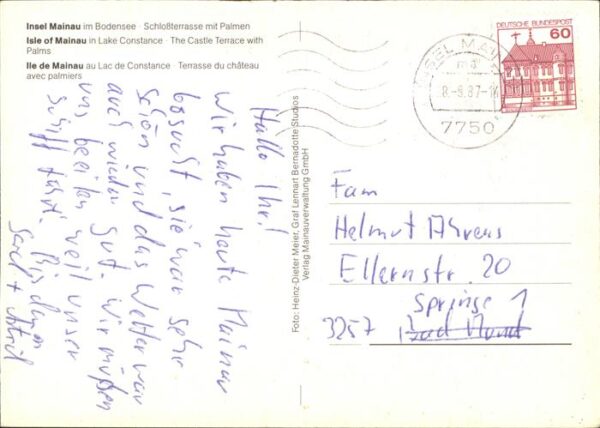 Insel Mainau im Bodensee · Schloßterrasse mit Palmen
Isle of Mainau in Lake Constance · The Castle Terrace with
Palms
Ile de Mainau au Lac de Constance · Terrasse du château
avec palmiers
Hallo Ihr!
Wir haben heute Mainau
besucht, sie war sehr
schön und das Wetter war
auch wieder gut. Wir müßen
uns beeilen weil unser
Schiff fährt. Bis dann
+ Astrid
Foto: Heinz-Dieter Meier, Graf Lennart Bernadotte Studios
Verlag Mainauverwaltung GmbH
DEUTSCHE BUNDESPOST
60
INSEL MAINAU
-9.87-1
7750
Fam
Helmut Ahrens
Ellernstr. 20
Springe 1
3257 Bad